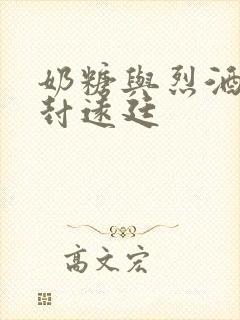 奶糖與烈酒
封遠廷
高文宏